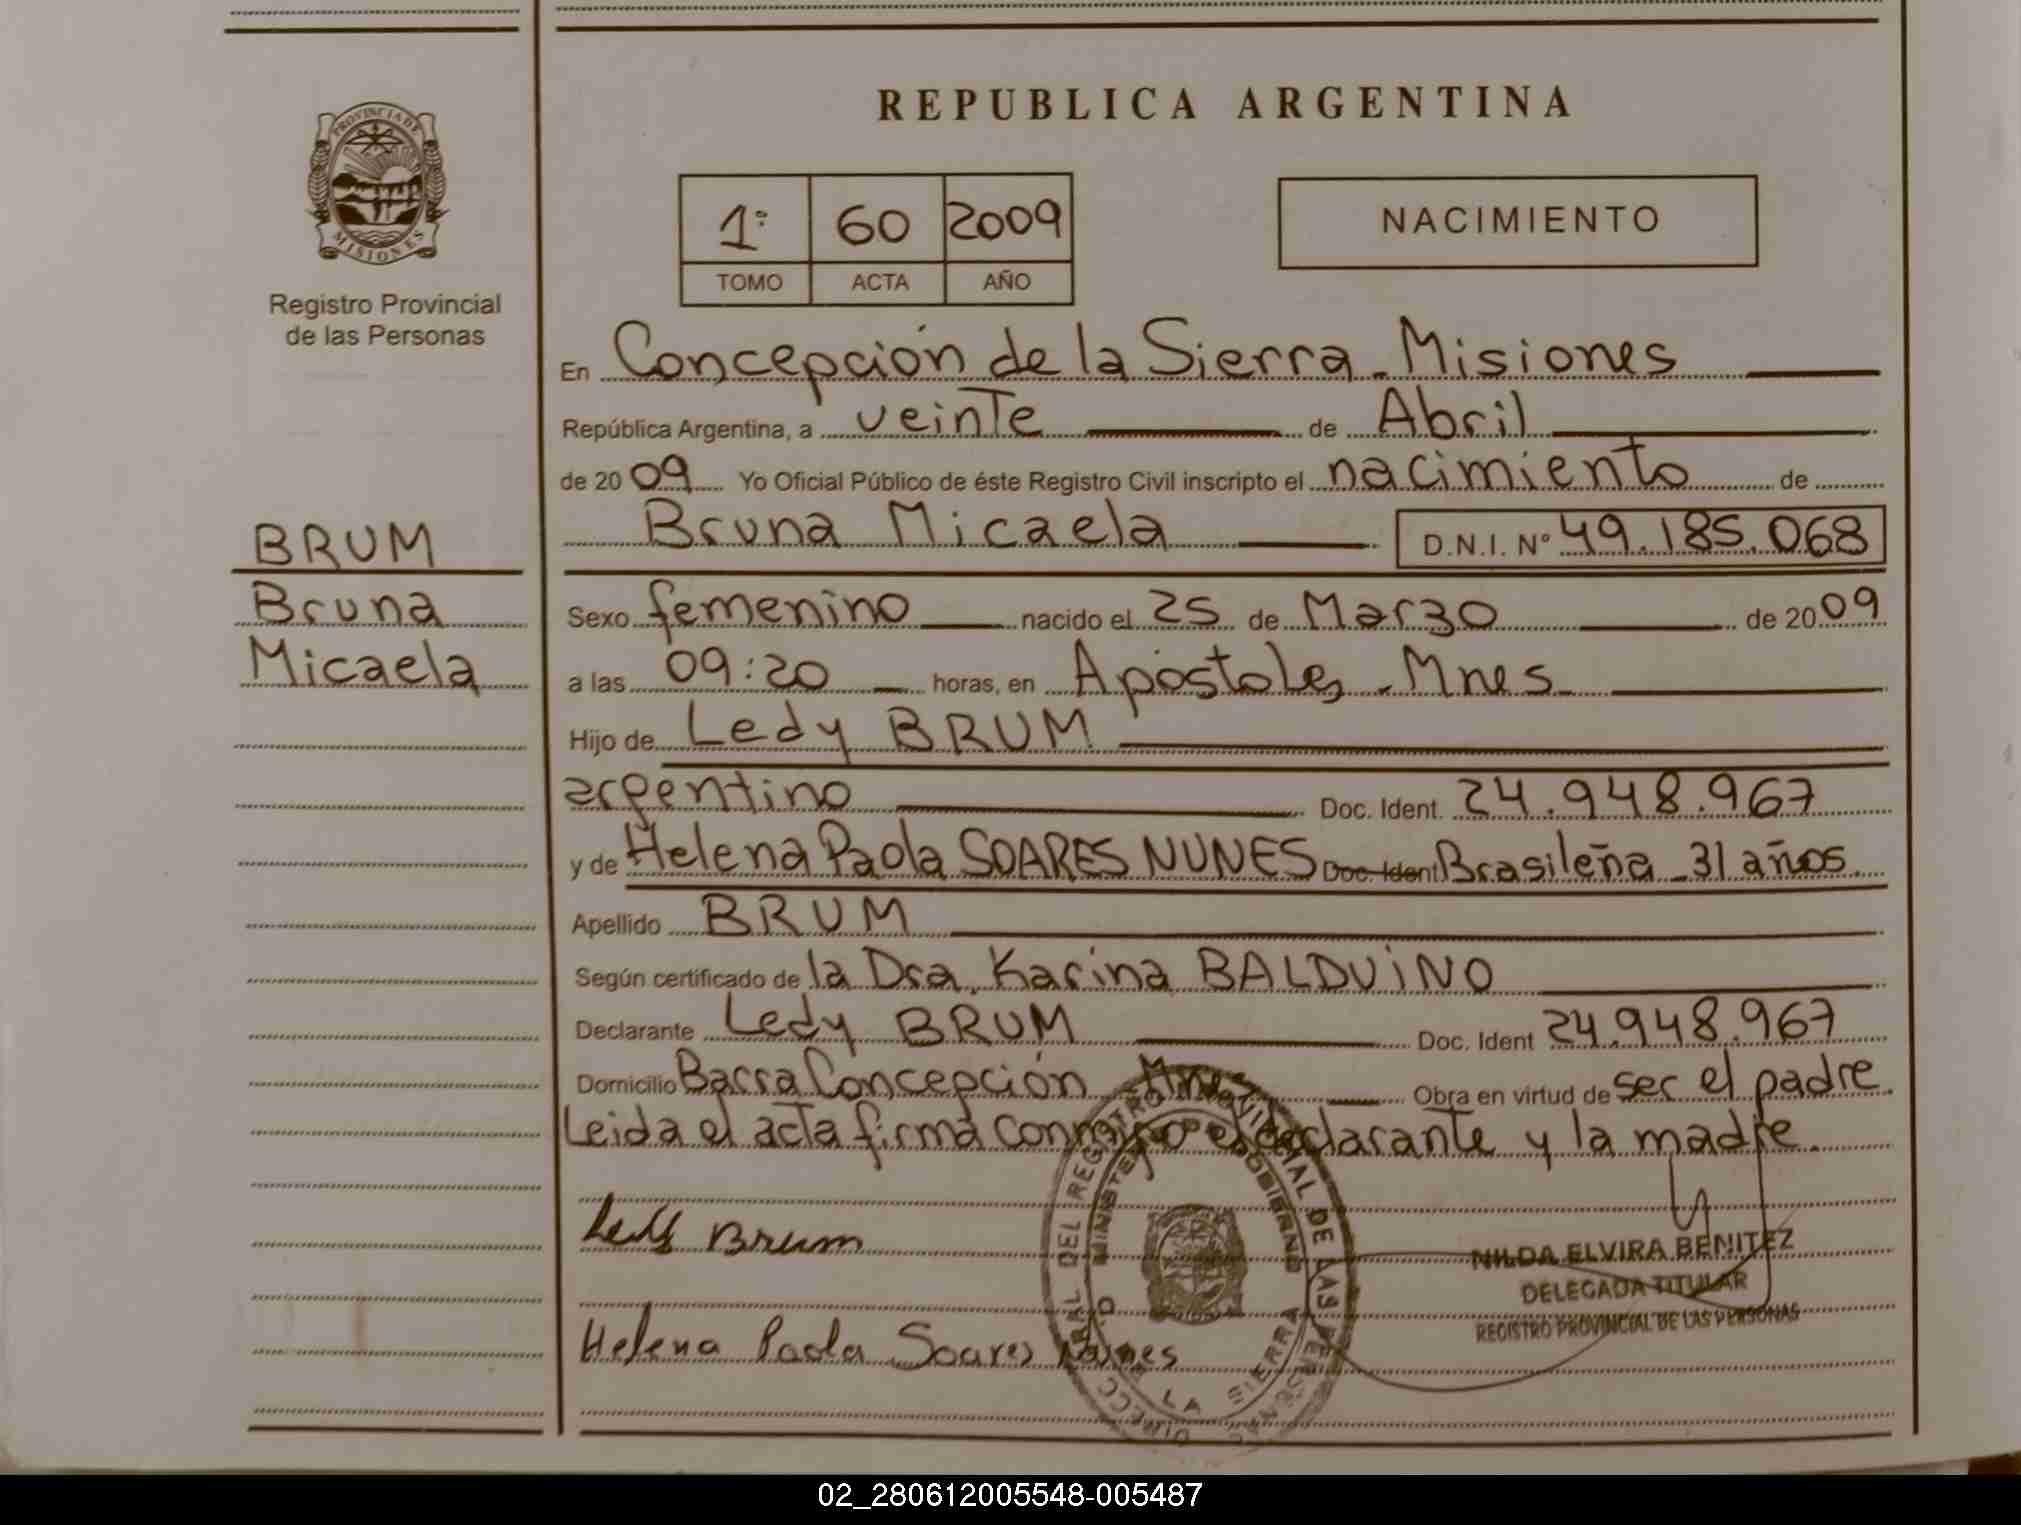 REPUBLICA ARGENTINA
PROVINCIA DE
MISIONES
Registro Provincial
de las Personas
1º 60 2009
TOMO ACTA AÑO
NACIMIENTO
En Concepción de la Sierra - Misiones
República Argentina, a veinte de Abril
de 2009 Yo Oficial Público de éste Registro Civil inscripto el nacimiento de
Bruna Micaela D.N.I. Nº 49.185.068
BRUM
Bruna
Micaela
Sexo femenino nacido el 25 de Marzo de 2009
a las 09:20 horas, en Apóstoles - Mnes
Hijo de Ledy BRUM
argentino Doc. Ident. 24.948.967
y de Helena Paola SOARES NUNES Doc. Ident Brasileña - 31 años.
Apellido BRUM
Según certificado de la Dra. Karina BALDUiNO
Declarante Ledy BRUM Doc. Ident 24.948.967
Domicilio Barra Concepción Mnes Obra en virtud de ser el padre.
Leida el acta firma conmigo el declarante y la madre.
Ledy Brum
Helena Paola Soares Nunes
NILDA ELVIRA BENITEZ
DELEGADA TITULAR
REGISTRO PROVINCIAL DE LAS PERSONAS
DEL REGISTRO PROVINCIAL DE LAS
MINISTERIO DE GOBIERNO
LA SIERRA
02_280612005548-005487